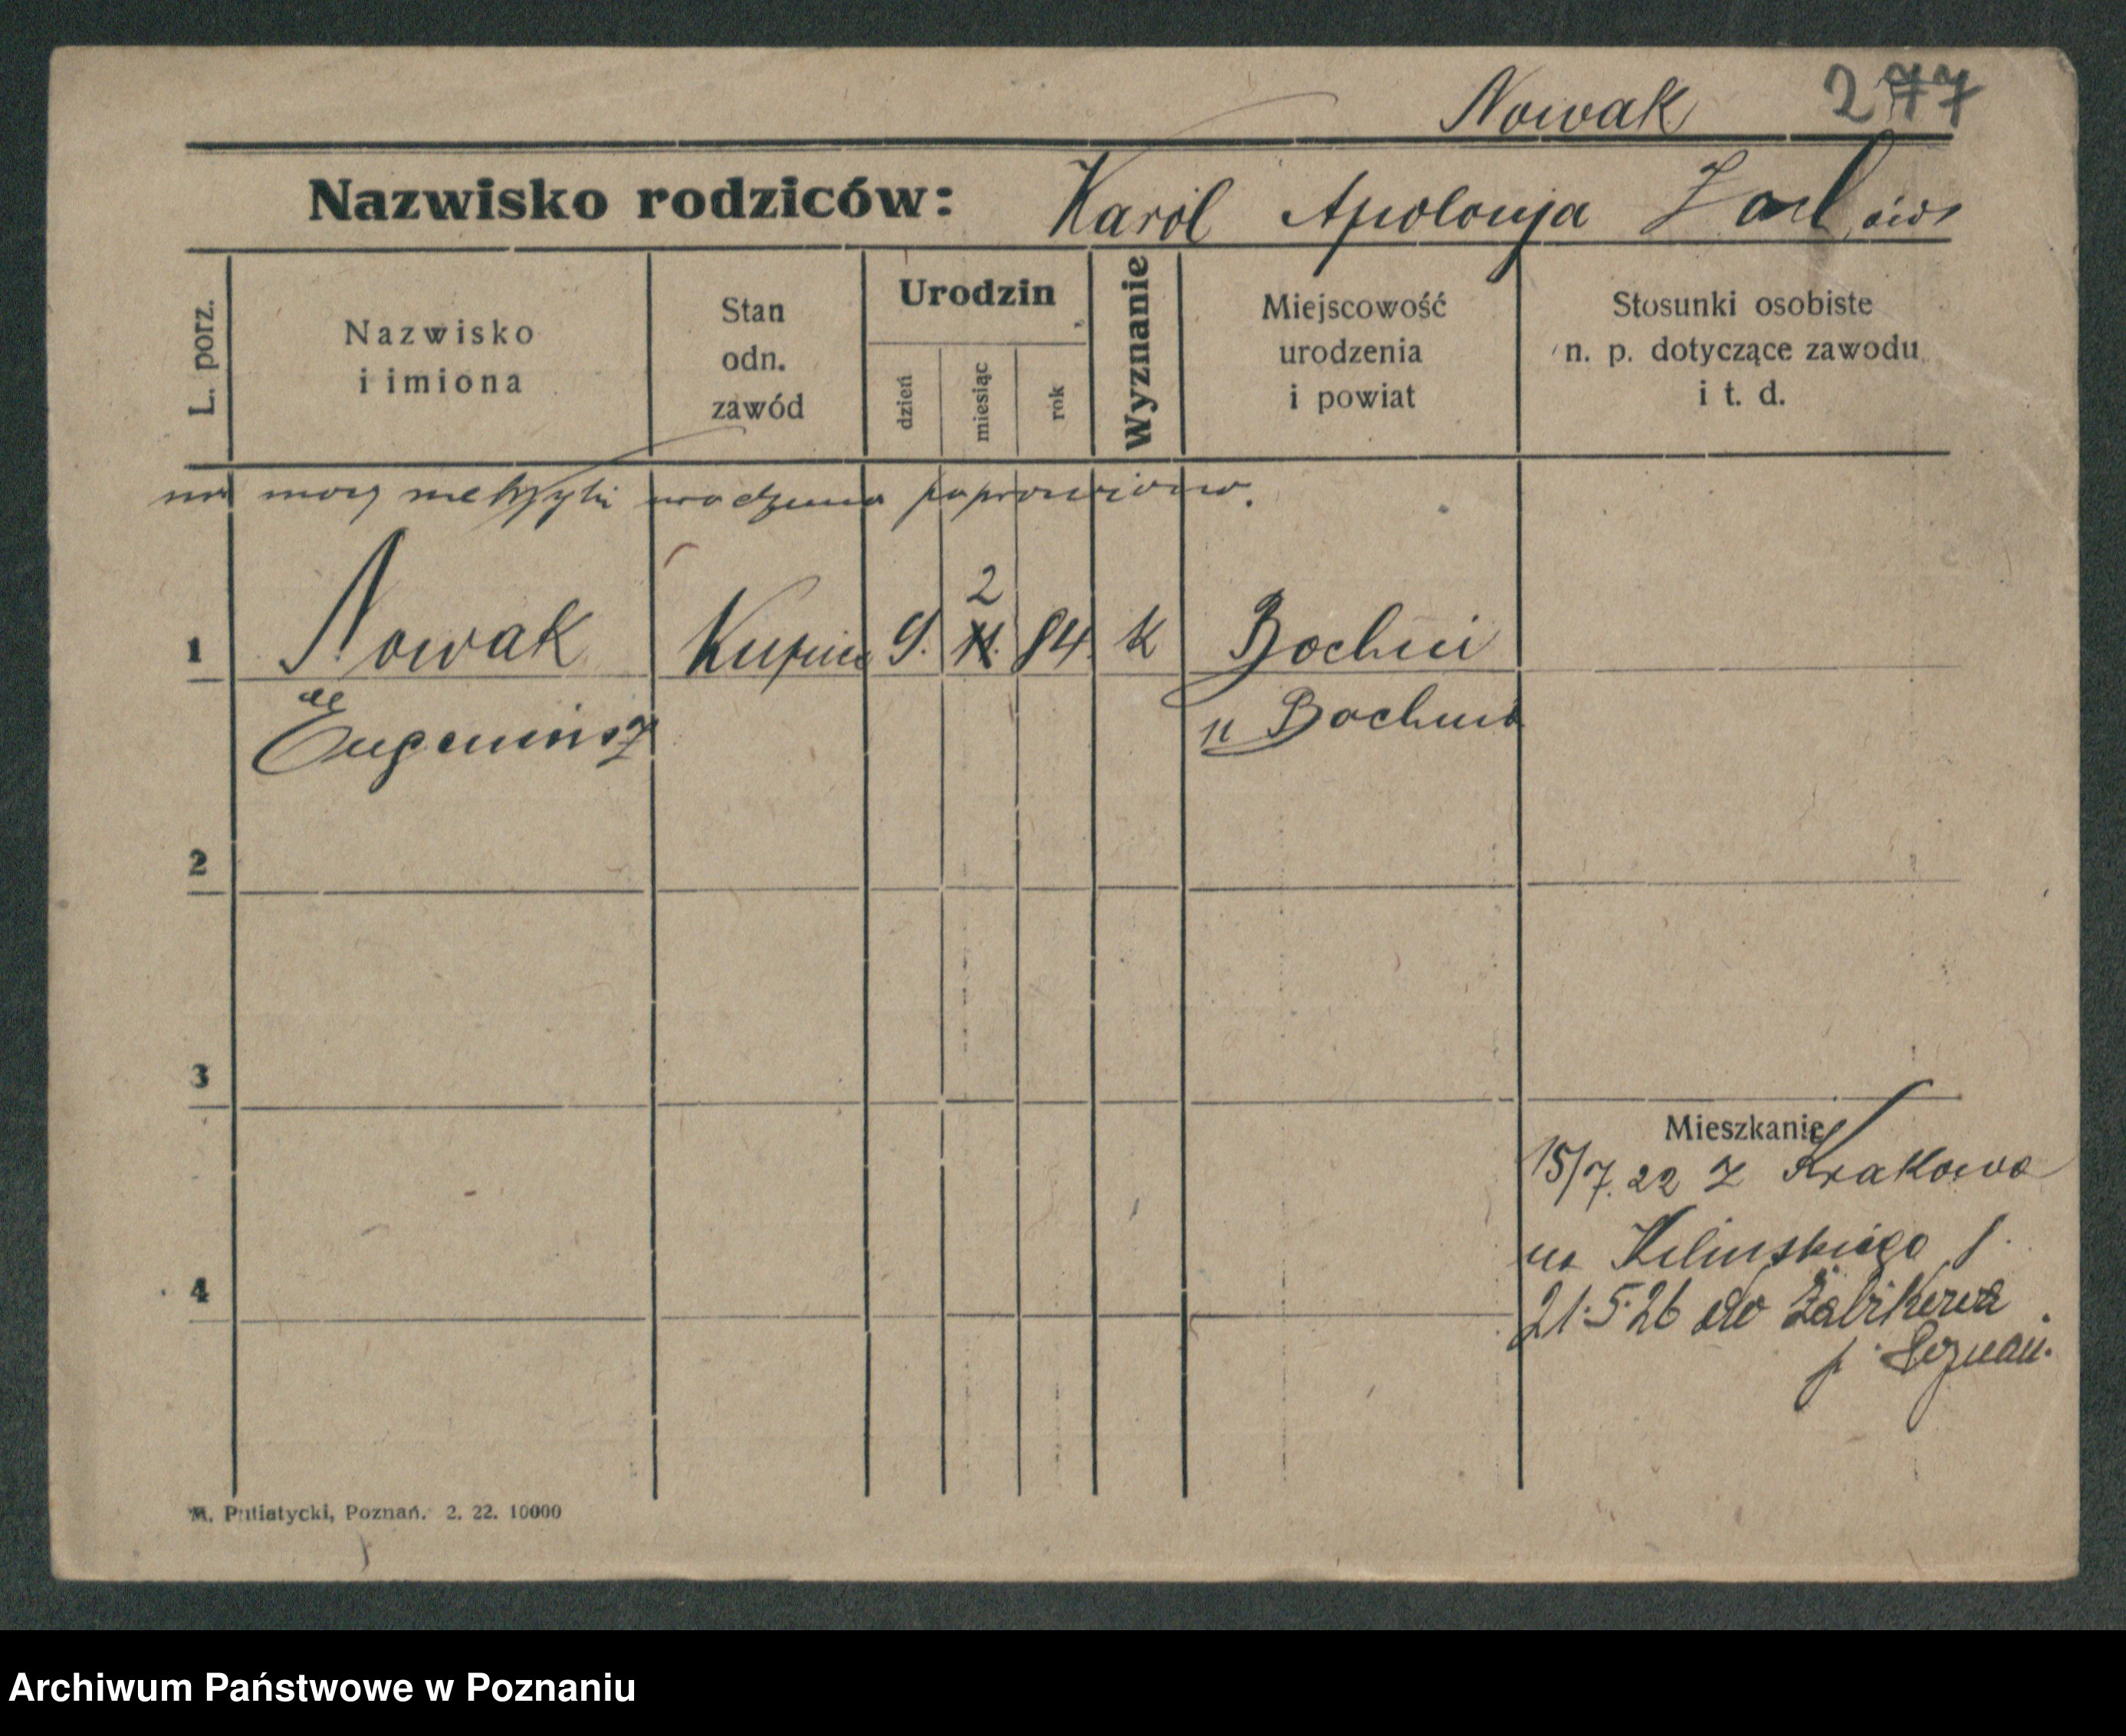 Nowak 277
Nazwisko rodziców: Karól Apolonja
L. porz.
Nazwisko i imiona
Stan odn. zawód
Urodzin
dzień miesiąc rok
Wyznanie
Miejscowość urodzenia i powiat
Stosunki osobiste n. p. dotyczące zawodu i t. d.
na mocy metryki urodzenia poprawiono.
2
1 Nowak Kupiec 9. XI. 84. k Bochni
Eugeniusz
" Bochnia
2
3
Mieszkanie
15/7. 22 z Krakowa
na Kilinskiego
4
21.5.26 do Żabikowa
p. Poznań.
M. Putiatycki, Poznań. 2. 22. 10000
Archiwum Państwowe w Poznaniu